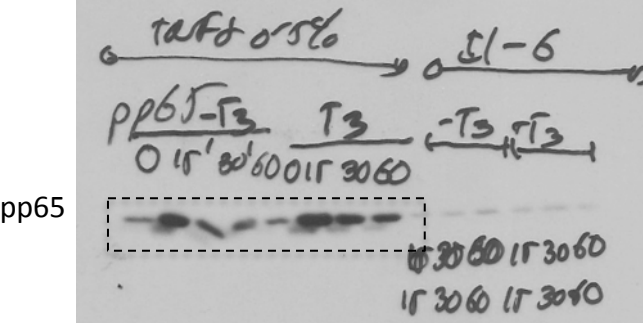 0.5% Il-6
pp65 -T3 T3 -T3 T3
0 15' 30' 60 0 15 30 60
pp65
30 60 15 30 60
15 30 60 15 30 60